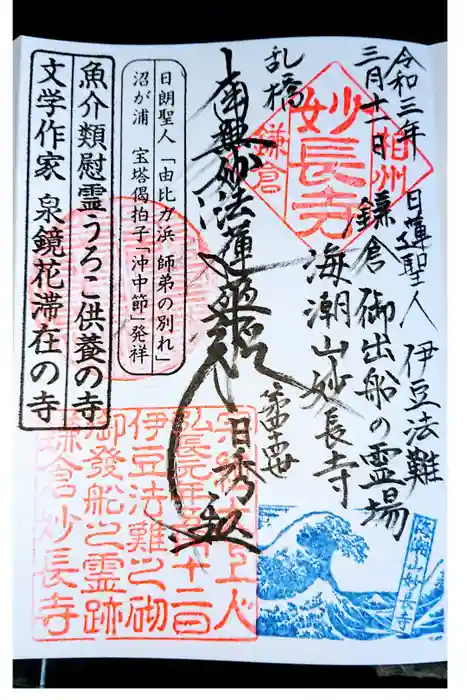 令和三年
三月十一日
日蓮聖人 伊豆法難
鎌倉 御出船の霊場
海潮山妙長寺
乱橋
南無妙法蓮華経
日秀
相州
妙長寺
鎌倉
日朗聖人「由比ガ浜 師弟の別れ」
沼が浦 宝塔偈拍子「沖中節」発祥
魚介類慰霊うろこ供養の寺
文学作家 泉鏡花滞在の寺
弘長元年五月十二日
伊豆法難之砌
御發船之霊跡
鎌倉妙長寺
海潮山妙長寺